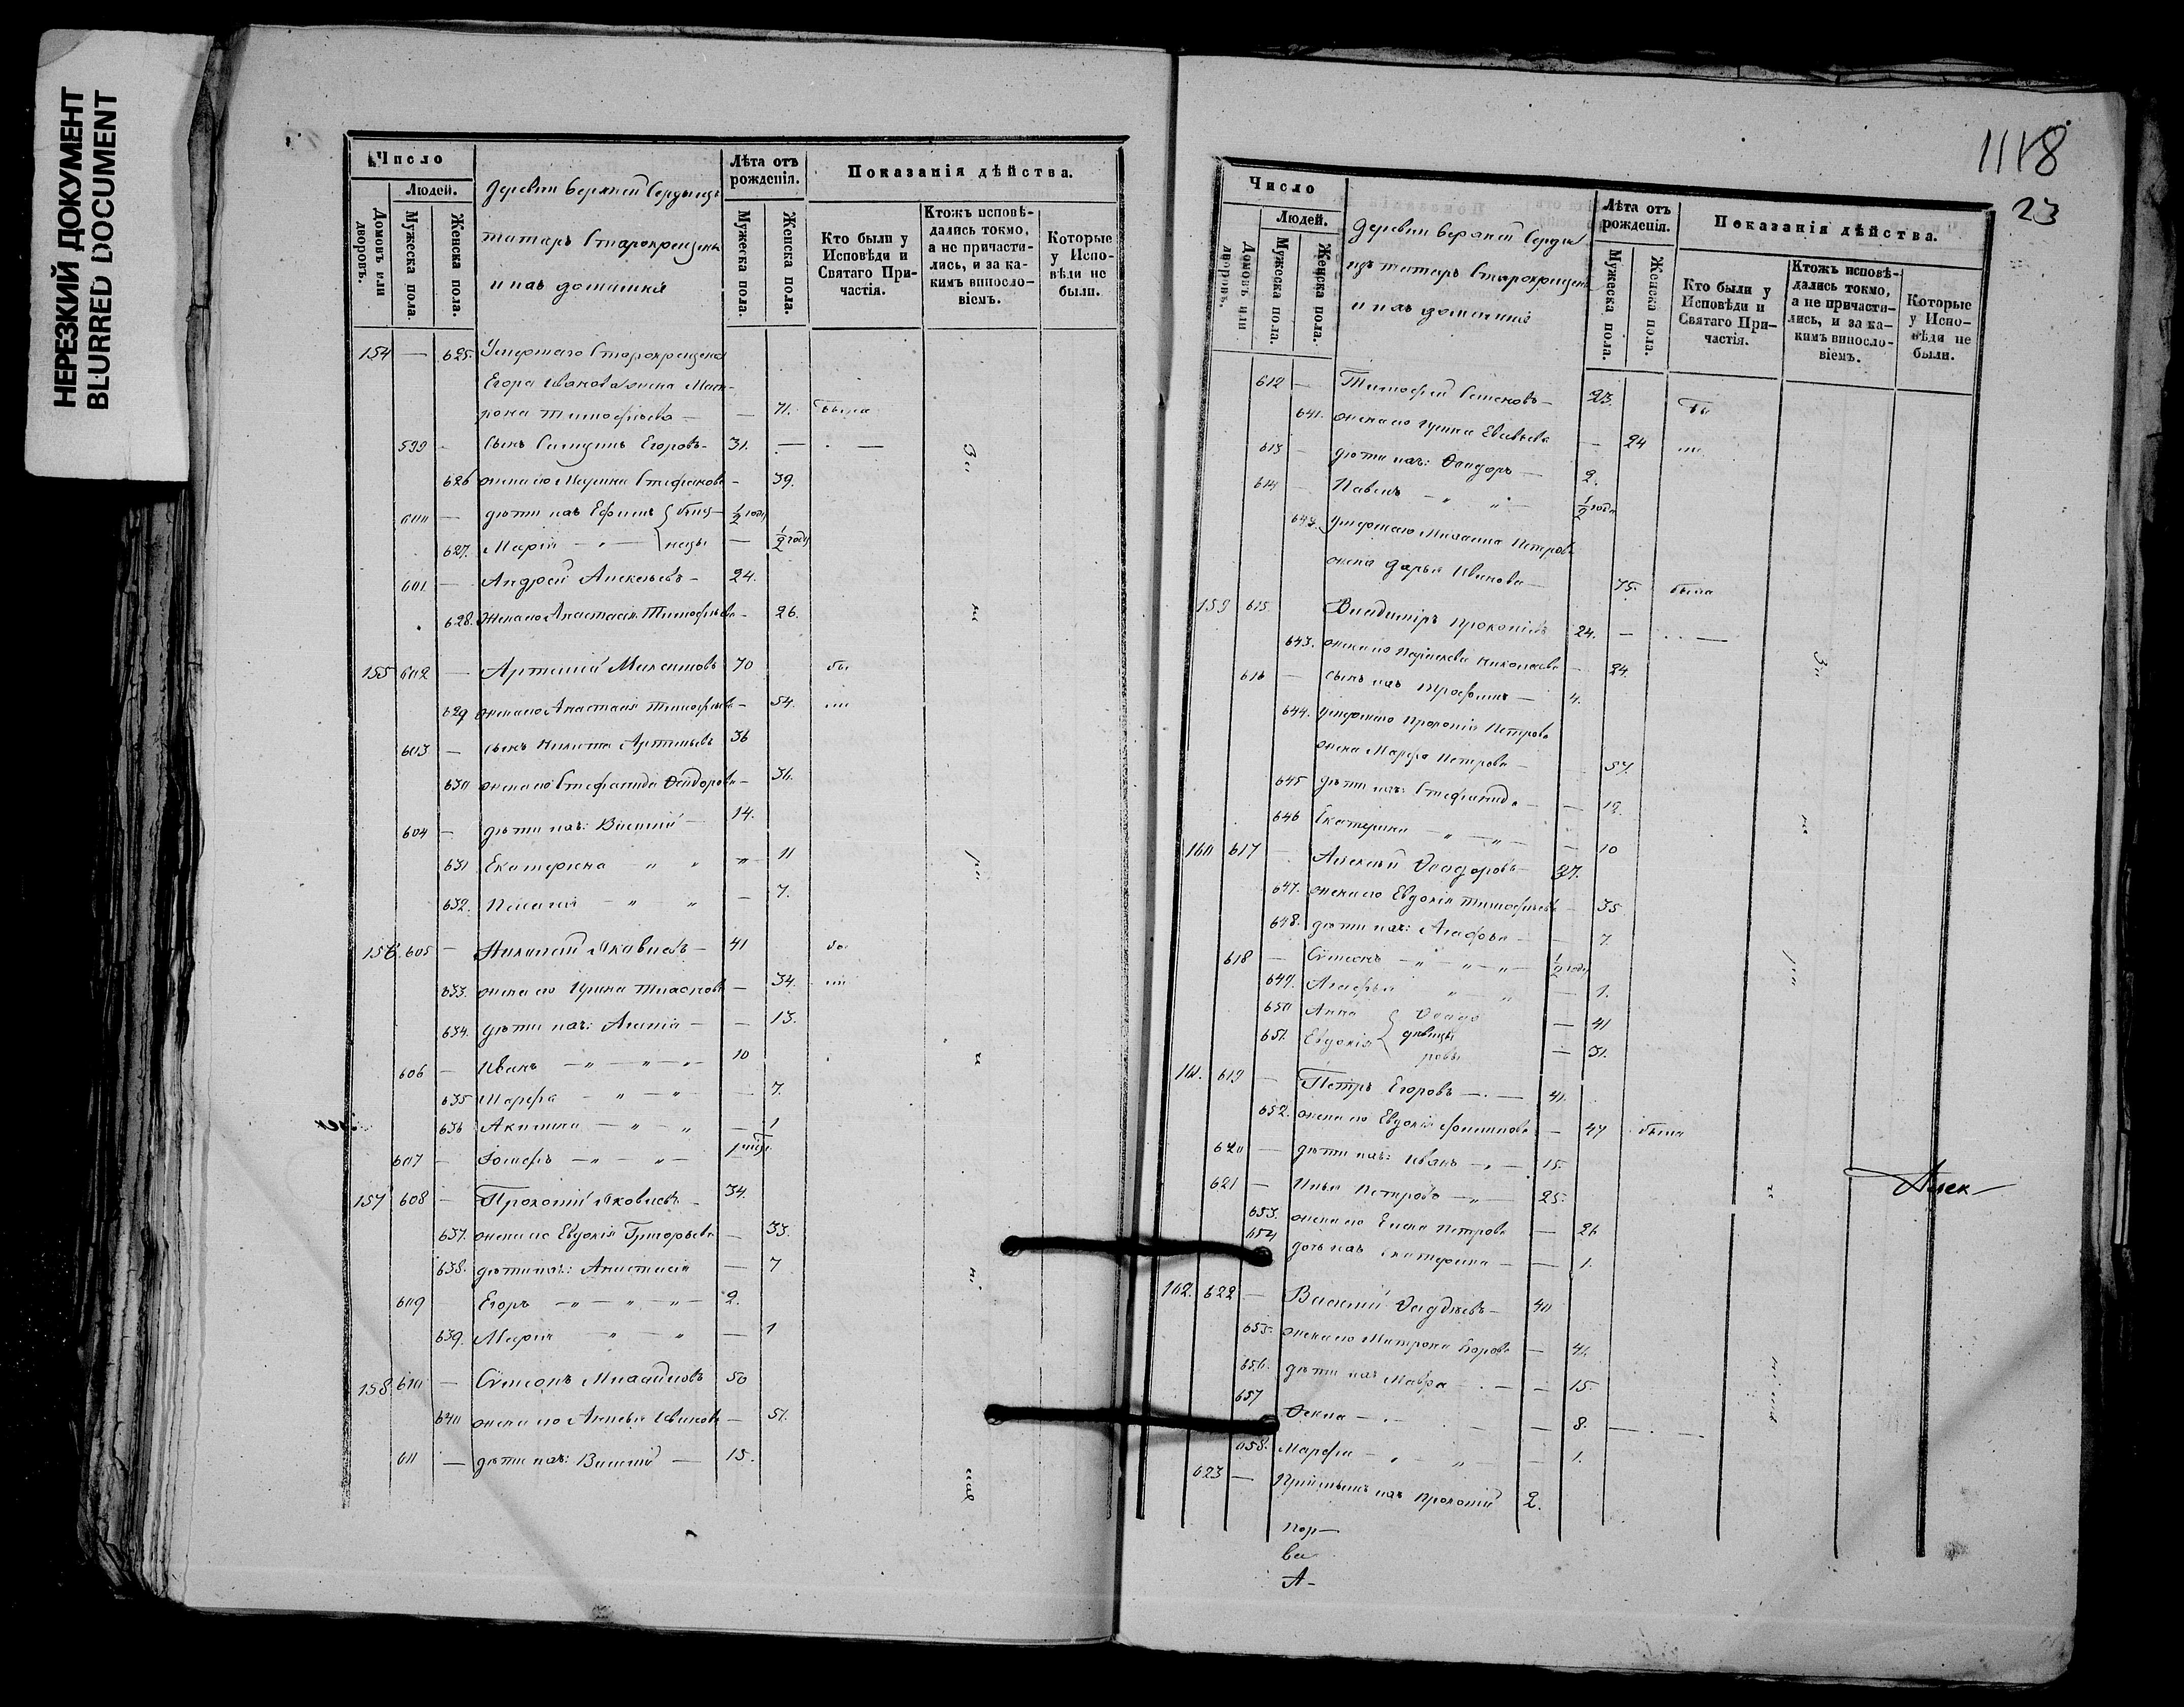 НЕРЕЗКИЙ ДОКУМЕНТ
BLURRED DOCUMENT
Число
Людей.
Домовъ или дворовъ.
Мужеска пола.
Женска пола.
деревни Верхней Сердыхъ
татаръ Старокрещены
и ихъ домашнiя
Лѣта отъ рожденія.
Мужеска пола.
Женска пола.
Показанія дѣйства.
Кто были у Исповѣди и Святаго При-
частія.
Ктожъ исповѣ-
дались токмо,
а не причасти-
лись, и за ка-
кимъ виносло-
віемъ.
Которые
у Испо-
вѣди не
были.
154 — 625. Умершаго Старокрещена
Егора Иванова жена Мат-
рона Тимофѣева — — 71. была
599 — сынъ Егоровъ — 31. —
626 жена его Марина Стефанова — 39.
600 — дѣти ихъ Ефимъ близ- ½ году
627. Марія — „ — нецы — ½ году
601 — Андрей Алексѣевъ — 24.
628. Жена его Анастасія Тимофѣева — 26.
155 602 — Артемій 70 бы
629 жена его Анастасія Тимофѣева — 54. ли
603 — сынъ Никита Артемьевъ 36
630 жена его Стефанида Ѳеодорова — 31.
604 — дѣти ихъ: Василій — 14.
631 Екатерина „ „ — 11
632. Пелагія — „ „ — 7.
156. 605 — Николай Яковлевъ — 41 бы
633. жена его Ирина — 34. ли
634. дѣти ихъ: — — 13.
606 — Иванъ — „ — „ — 10
635 Марфа — „ — „ — 7.
636 Акилина — „ — „ — 1
607 — Іосифъ — „ — „ —
157 608 — Прокопій Яковлевъ — 34.
637. жена его Евдокія Григорьева — 33.
638. дѣти ихъ: Анастасія — 7
609 Егоръ — „ — „ — 2.
639. Марія — „ — „ — 1
158. 610 — Сѵмеонъ Михайловъ 50
640 жена его Иванова — 51.
611 — дѣти ихъ: Василій — 15.
1118
23
Число
Людей.
Домовъ или дворовъ.
Мужеска пола.
Женска пола.
деревни Верхней Серды
хъ татаръ Старокрещены
и ихъ домашнія
Лѣта отъ рожденія.
Мужеска пола.
Женска пола.
Показанія дѣйства.
Кто были у
Исповѣди и
Святаго При-
частія.
Ктожъ исповѣ-
дались токмо,
а не причасти-
лись, и за ка-
кимъ виносло-
віемъ.
Которые
у Испо-
вѣди не
были.
612 — Тимофей — 23. бы
641. жена его Ирина — 24 ли
613 — дѣти ихъ: Ѳеодоръ — 2.
614 — Павелъ — „ „ — ½ года
642. умершаго Михаила Петрова
жена Дарья Иванова — 75. была
159 615. Владиміръ Прокопіевъ 24. —
643. жена его Параскева Николаева — 24.
616 — сынъ ихъ Трофимъ — 4.
644. умершаго Прокопія Петрова
жена Марфа Петрова — 57.
645 дѣти ихъ: Стефанида — — 12.
646 Екатерина — „ — „ — — 10
160 617 — Алексѣй Ѳеодоровъ — 37.
647. жена его Евдокія Тимофѣева — 35
648. дѣти ихъ: Агафья — — 7.
618 — Сѵмеонъ — „ — „ — „ — ½ году
649. Агафья „ — „ — 1.
650 Анна Ѳеодо — 41
651. Евдокія дѣвицы ровы — 31.
161. 619 — Петръ Егоровъ — 41.
652. жена его Евдокія — 47 была
620 — дѣти ихъ: Иванъ — „ — 15.
621 — Илья Петровъ — „ — 25.
653. жена его Елена Петрова — 26
654 дочь ихъ Екатерина — — 1.
162. 622 — Василій — 40
655. жена его Матрона Егорова — 41.
656. дѣти ихъ Мавра — — 15.
657 Ѳекла — — 8.
658. Марфа — „ — „ — 1.
623 — Пріемышъ ихъ Прокопій 2.
Алек —
пор —
ва
А —